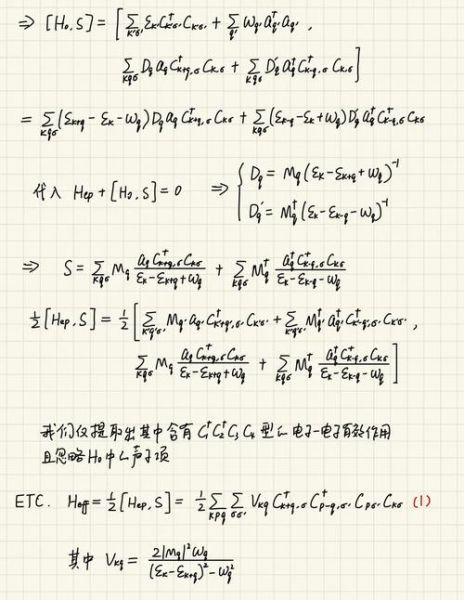 ⇒ [H₀,S] = [ ∑_{k'σ'} ε_{k'} C†_{k'σ'} C_{k'σ'} + ∑_{q'} ω_{q'} a†_{q'} a_{q'} ,
∑_{kqσ} D_q a_q C†_{k+q,σ} C_{k,σ} + ∑_{kqσ} D'_q a†_q C†_{k-q,σ} C_{k,σ} ]
= ∑_{kqσ} (ε_{k+q} - ε_k - ω_q) D_q a_q C†_{k+q,σ} C_{kσ} + ∑_{kqσ} (ε_{k-q} - ε_k + ω_q) D'_q a†_q C†_{k-q,σ} C_{kσ}
代入 Hep + [H₀,S] = 0 ⇒ { D_q = M_q (ε_k - ε_{k+q} + ω_q)⁻¹
D'_q = M†_q (ε_k - ε_{k-q} - ω_q)⁻¹
⇒ S = ∑_{kqσ} M_q a_q C†_{k+q,σ} C_{kσ} / (ε_k - ε_{k+q} + ω_q) + ∑_{kqσ} M†_q a†_q C†_{k-q,σ} C_{kσ} / (ε_k - ε_{k-q} - ω_q)
½ [Hep,S] = ½ [ ∑_{k'q'σ'} M_{q'} a_{q'} C†_{k'+q',σ'} C_{k'σ'} + ∑_{k'q'σ'} M†_{q'} a†_{q'} C†_{k'-q',σ'} C_{k'σ'} ,
∑_{kqσ} M_q a_q C†_{k+q,σ} C_{kσ} / (ε_k - ε_{k+q} + ω_q) + ∑_{kqσ} M†_q a†_q C†_{k-q,σ} C_{kσ} / (ε_k - ε_{k-q} - ω_q) ]
我们仅提取出其中含有 C₁†C₂†C₃C₄ 型的电子-电子有效作用
且忽略 H₀ 中的声子项
ETC. Heff = ½ [Hep,S] = ½ ∑_{kpq} ∑_{σσ'} V_{kq} C†_{k+q,σ} C†_{p-q,σ'} C_{pσ'} C_{kσ} (1)
其中 V_{kq} = 2|M_q|² ω_q / ((ε_k - ε_{k+q})² - ω_q²)